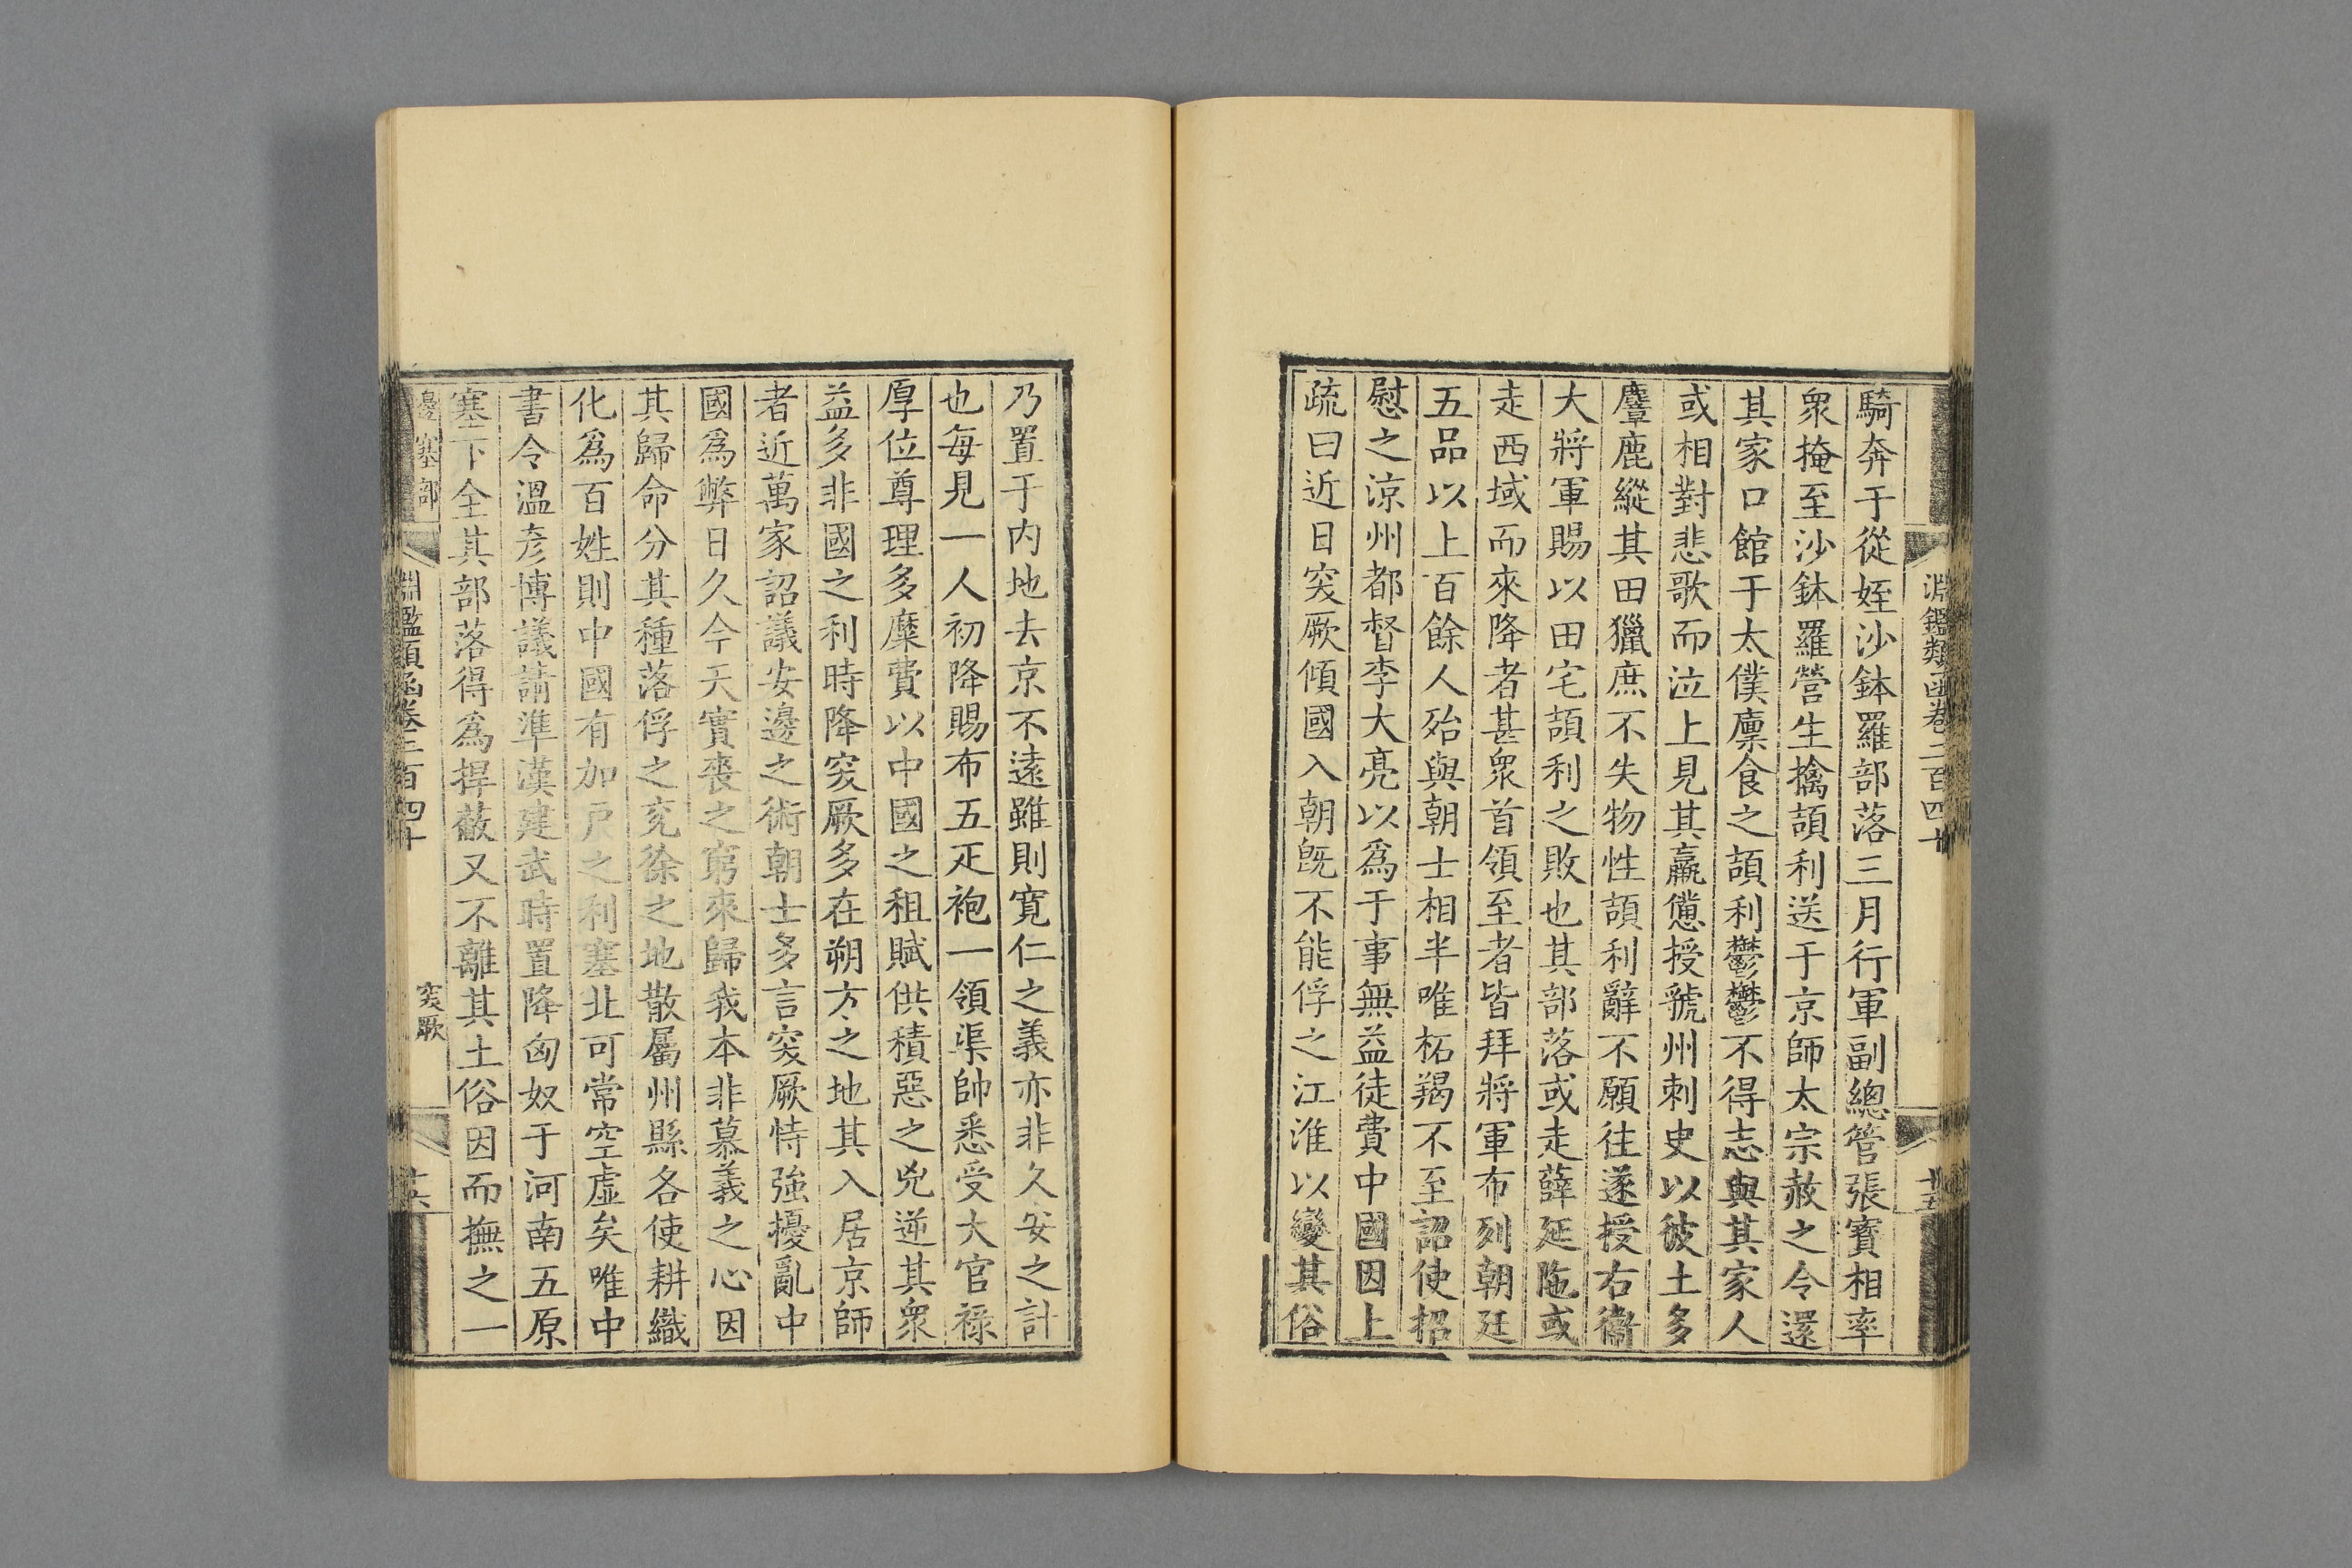 淵鑑類函卷二百四十
十五
騎奔于從姪沙鉢羅部落三月行軍副總管張寶相率
衆掩至沙鉢羅營生擒頡利送于京師太宗赦之令還
其家口館于太僕廩食之頡利鬱鬱不得志與其家人
或相對悲歌而泣上見其羸憊授虢州刺史以彼土多
麞鹿縱其田獵庶不失物性頡利辭不願往遂授右衞
大將軍賜以田宅頡利之敗也其部落或走薛延陁或
走西域而來降者甚衆首領至者皆拜將軍布列朝廷
五品以上百餘人殆與朝士相半唯柘羯不至詔使招
慰之涼州都督李大亮以爲于事無益徒費中國因上
疏曰近日突厥傾國入朝既不能俘之江淮以變其俗
乃置于内地去京不遠雖則寛仁之義亦非久安之計
也每見一人初降賜布五疋袍一領渠帥悉受大官祿
厚位尊理多糜費以中國之租賦供積惡之兇逆其衆
益多非國之利時降突厥多在朔方之地其入居京師
者近萬家詔議安邊之術朝士多言突厥恃強擾亂中
國爲弊日久今天實喪之窮來歸我本非慕義之心因
其歸命分其種落俘之兖徐之地散屬州縣各使耕織
化爲百姓則中國有加戸之利塞北可常空虛矣唯中
書令溫彥博議請準漢建武時置降匈奴于河南五原
塞下全其部落得爲捍蔽又不離其土俗因而撫之一
邊塞部
淵鑑類函卷二百四十
突厥
十六